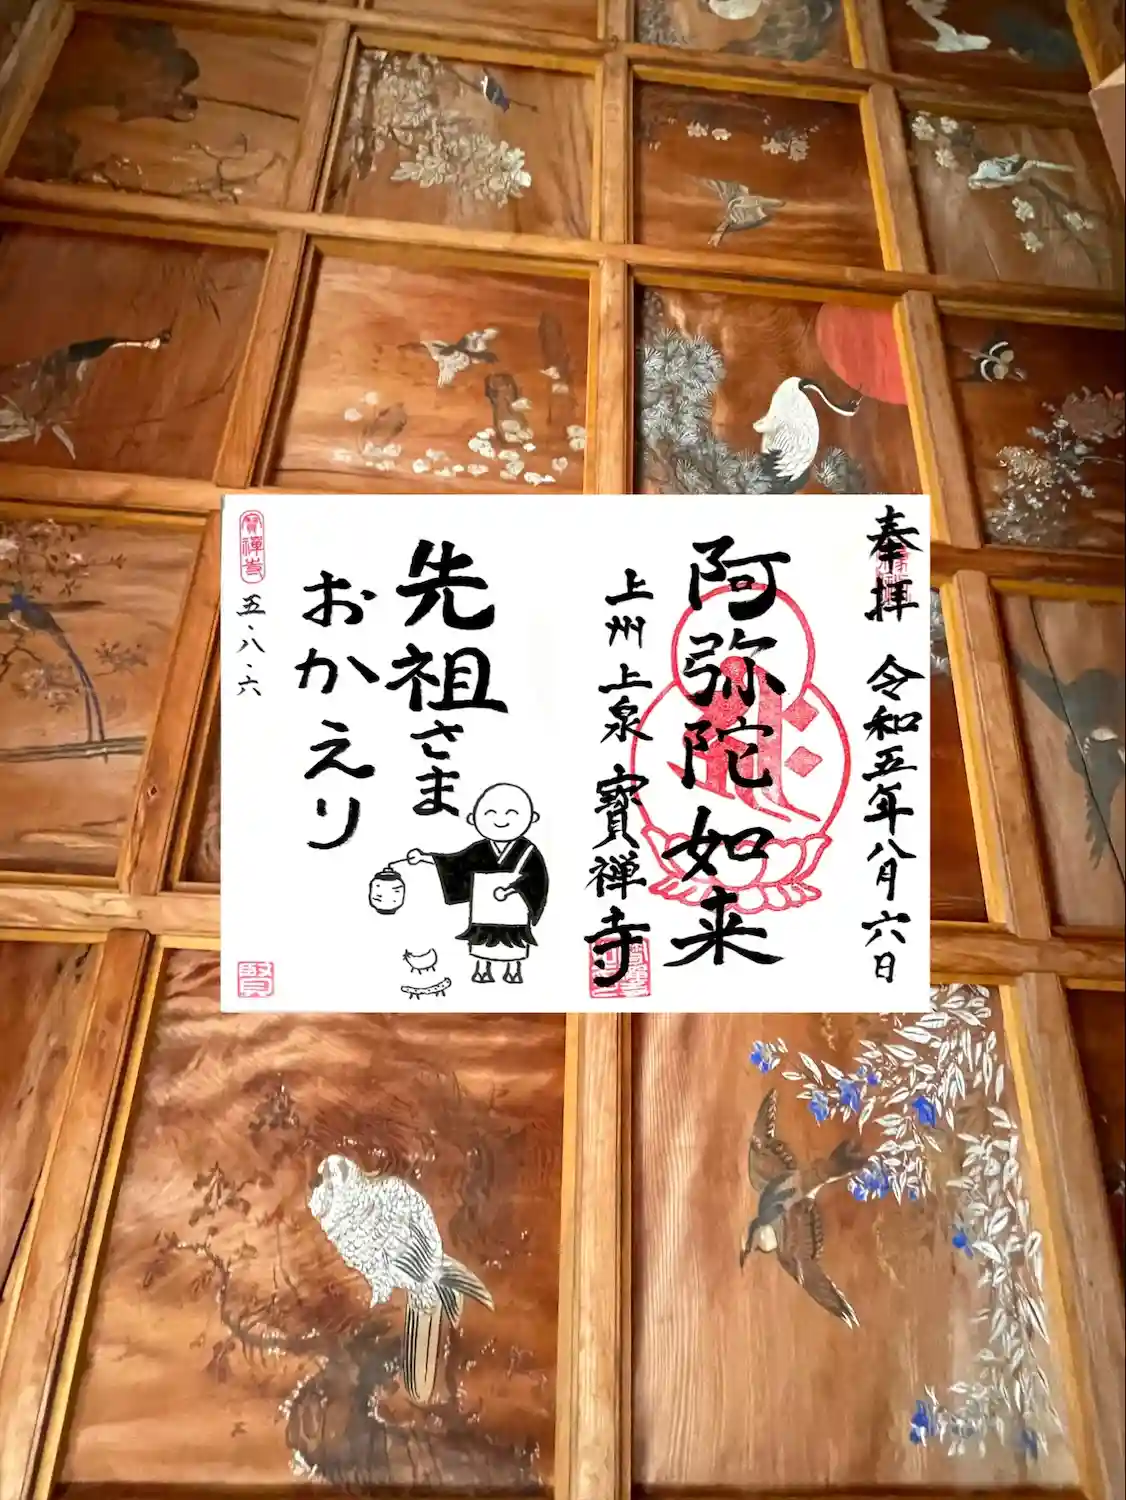 奉拝 令和五年八月六日
阿弥陀如来
上州上泉 寳禅寺
先祖さま
おかえり
寳禪寺
五・八・六
賢